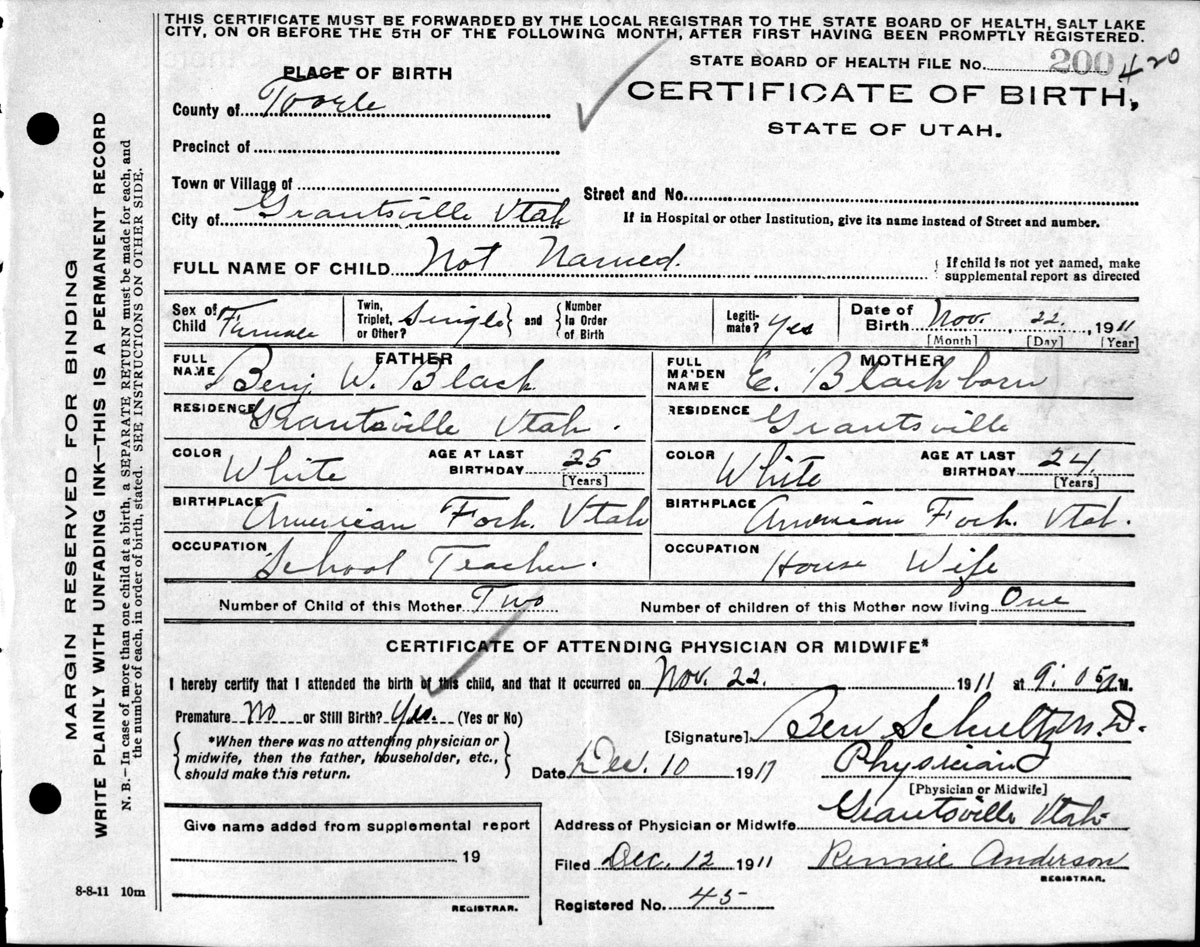 THIS CERTIFICATE MUST BE FORWARDED BY THE LOCAL REGISTRAR TO THE STATE BOARD OF HEALTH, SALT LAKE
CITY, ON OR BEFORE THE 5TH OF THE FOLLOWING MONTH, AFTER FIRST HAVING BEEN PROMPTLY REGISTERED.
STATE BOARD OF HEALTH FILE No. 200 420
PLACE OF BIRTH
CERTIFICATE OF BIRTH,
STATE OF UTAH.
County of Tooele
Precinct of
Town or Village of
Street and No.
City of Grantsville Utah
If in Hospital or other Institution, give its name instead of Street and number.
FULL NAME OF CHILD Not Named.
{ If child is not yet named, make
supplemental report as directed
Sex of Child Female
Twin, Triplet, or Other? Single } and { Number In Order of Birth
Legiti-mate? Yes
Date of Birth Nov. , 22. , 1911
[Month] [Day] [Year]
FATHER
FULL NAME Benj W. Black
MOTHER
FULL MA'DEN NAME E. Blackborn
RESIDENCE Grantsville Utah.
RESIDENCE Grantsville
COLOR White AGE AT LAST BIRTHDAY 25 [Years]
COLOR White AGE AT LAST BIRTHDAY 24. [Years]
BIRTHPLACE American Fork. Utah
BIRTHPLACE American Fork. Utah.
OCCUPATION School Teacher.
OCCUPATION House Wife
Number of Child of this Mother Two
Number of children of this Mother now living One
CERTIFICATE OF ATTENDING PHYSICIAN OR MIDWIFE*
I hereby certify that I attended the birth of this child, and that it occurred on Nov. 22. 1911 at 9:05 A.M.
Premature No or Still Birth? Yes. (Yes or No)
[Signature] Ben Schultz M.D.
*When there was no attending physician or
midwife, then the father, householder, etc.,
should make this return.
Date Dec. 10 1911
Physician
[Physician or Midwife]
Address of Physician or Midwife Grantsville Utah
Give name added from supplemental report
19
REGISTRAR.
Filed Dec. 12 1911 Rennie Anderson
REGISTRAR.
Registered No. 45
8-8-11 10m
MARGIN RESERVED FOR BINDING
WRITE PLAINLY WITH UNFADING INK—THIS IS A PERMANENT RECORD
N. B.—In case of more than one child at a birth, a SEPARATE RETURN must be made for each, and
the number of each, in order of birth, stated. SEE INSTRUCTIONS ON OTHER SIDE.